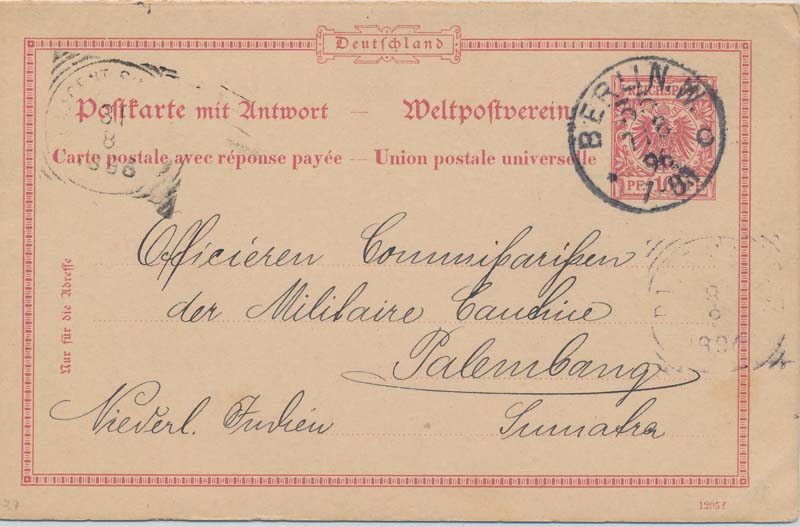 Deutschland
Postkarte mit Antwort — Weltpostverein
Carte postale avec réponse payée — Union postale universelle
REICHSPOST
10
BERLIN W.
Nur für die Adresse
Officiéren Commißarißen
der Militaire Cantine
Palembang
Niederl. Indiën Sumatra
12957
37